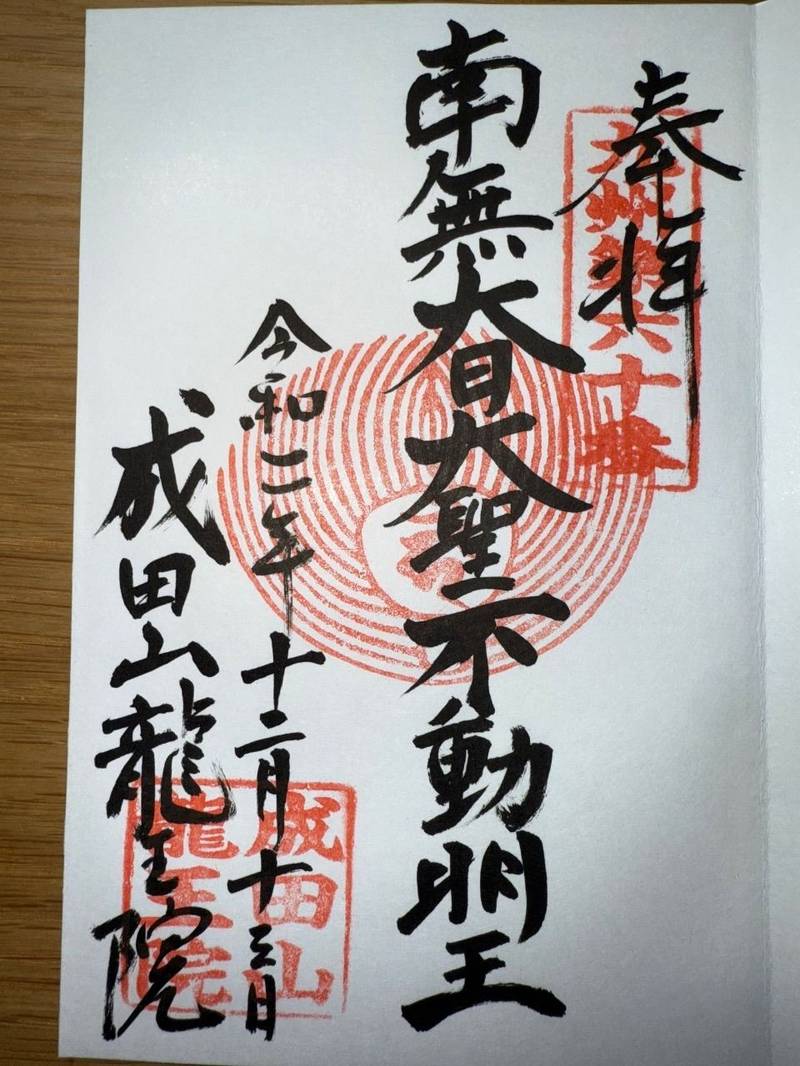 奉拝
九州第六十番
南無大日大聖不動明王
令和二年十二月十三日
成田山龍王院
成田山
龍王院